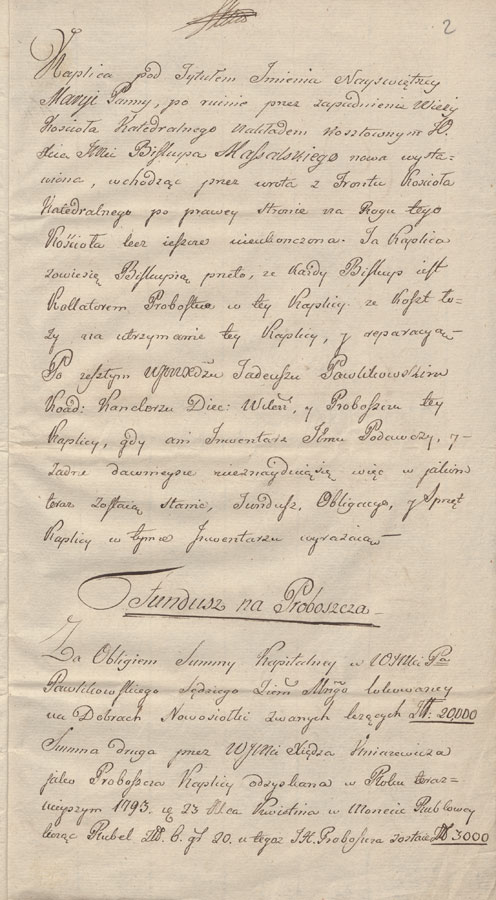 2
Kaplica pod Tytułem Imienia Nayswiętszey
Maryi Panny, po ruinie przez zapadnienie Wieży
Kościoła Katedralnego Nakładem kosztownym
Biskupa Massalskiego nowa wysta-
wiona, wchodząc przez wrota z Frontu Kościoła
Katedralnego po prawey stronie na Rogu tego
Kościoła lecz ieszcze nieukończona. Ta Kaplica
zowiesię Biskupią przeto, ze Każdy Biskup iest
Kollatorem Probostwa w tey Kaplicy ze Koszt ło-
ży na utrzymanie tey Kaplicy, y reparacyą
Po zeszłym Tadeuszu Pawlikowskim
Koad: Kanclerzu Diec: Wileń: y Proboszczu tey
Kaplicy, gdy ani Inwentarz Jemu Podawczy, y
żadne dawnieysze nieznayduiąsię więc w jakim
teraz zostaią stanie, Fundusz, Obligacye, y Sprzęt
Kaplicy w tym Inwentarzu wyrażaią
Fundusz na Proboszcza
Za Obligiem Summy Kapitalney w JMci Pa
Pawlikowskiego Sędziego Ziem: lokowaney
na Dobrach Nowosiołki zwanych leżących Zł: 20,000
Summa druga przez WJMci Xiędza Kniazewicza
jako Proboszcza Kaplicy odzyskana w Roku teraz-
nieyszym 1793. 23 Kwietnia w Monecie Rublowey
licząc Rubel Zł. 6. gł 20. u tegoż Proboszcza zostaie Zł 3000